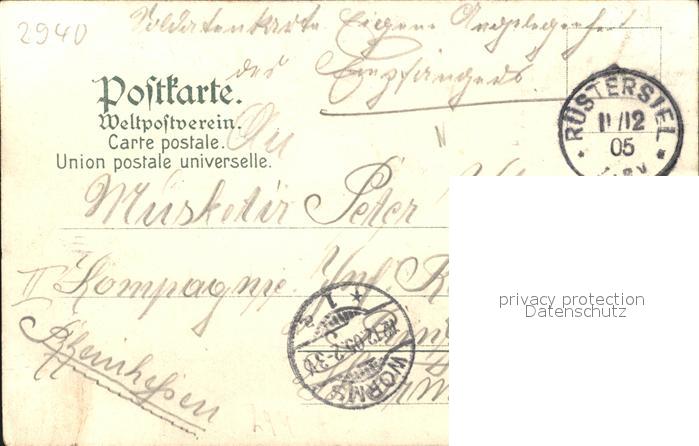 2940
Soldatenkarte Eigene Angelegenheit
des Empfängers
Postkarte.
Weltpostverein.
Carte postale.
Union postale universelle.
RÜSTERSIEL
11/12
05
An
Musketir Peter
II Kompagnie. Inf
Rheinhessen
WORMS
12.12.05.2-3
1
privacy protection
Datenschutz